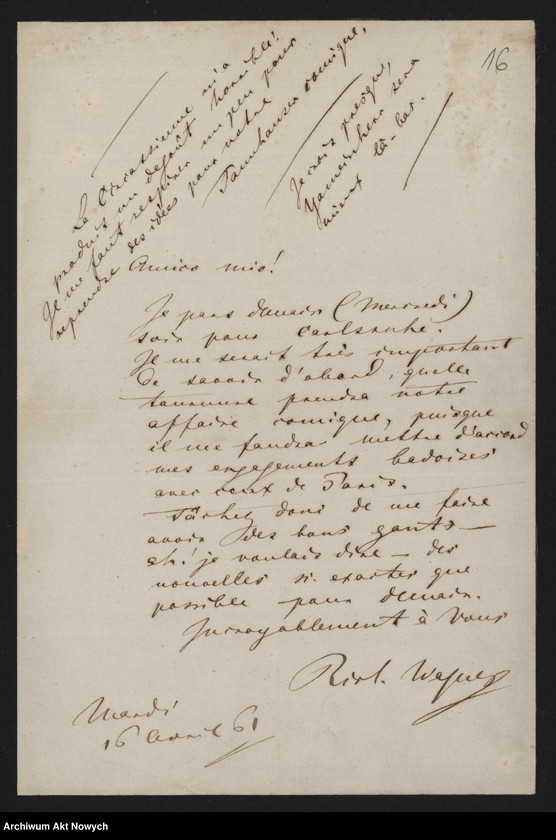 16
La Circassienne m'a
produit un degoût horrible!
Il me faut respirer un peu pour
reprendre des idées pour notre
Tannhauser comique,
Je crois presque,
sera
mieux là-bas.
Amico mio!
Je pars demain (Mercredi)
soir pour Carlsruhe.
Il me serait très important
de savoir d'abord, quelle
tournure prendra notre
affaire comique, puisque
il me faudra mettre d'accord
mes engagements badoises
avec ceux de Paris.
Tâchez donc de me faire
avoir des bons gants —
eh! je voulais dire — des
nouvelles si exactes que
possible pour demain.
Incroyablement à Vous
Rich. Wagner
Mardi
16 Avril 61
Archiwum Akt Nowych